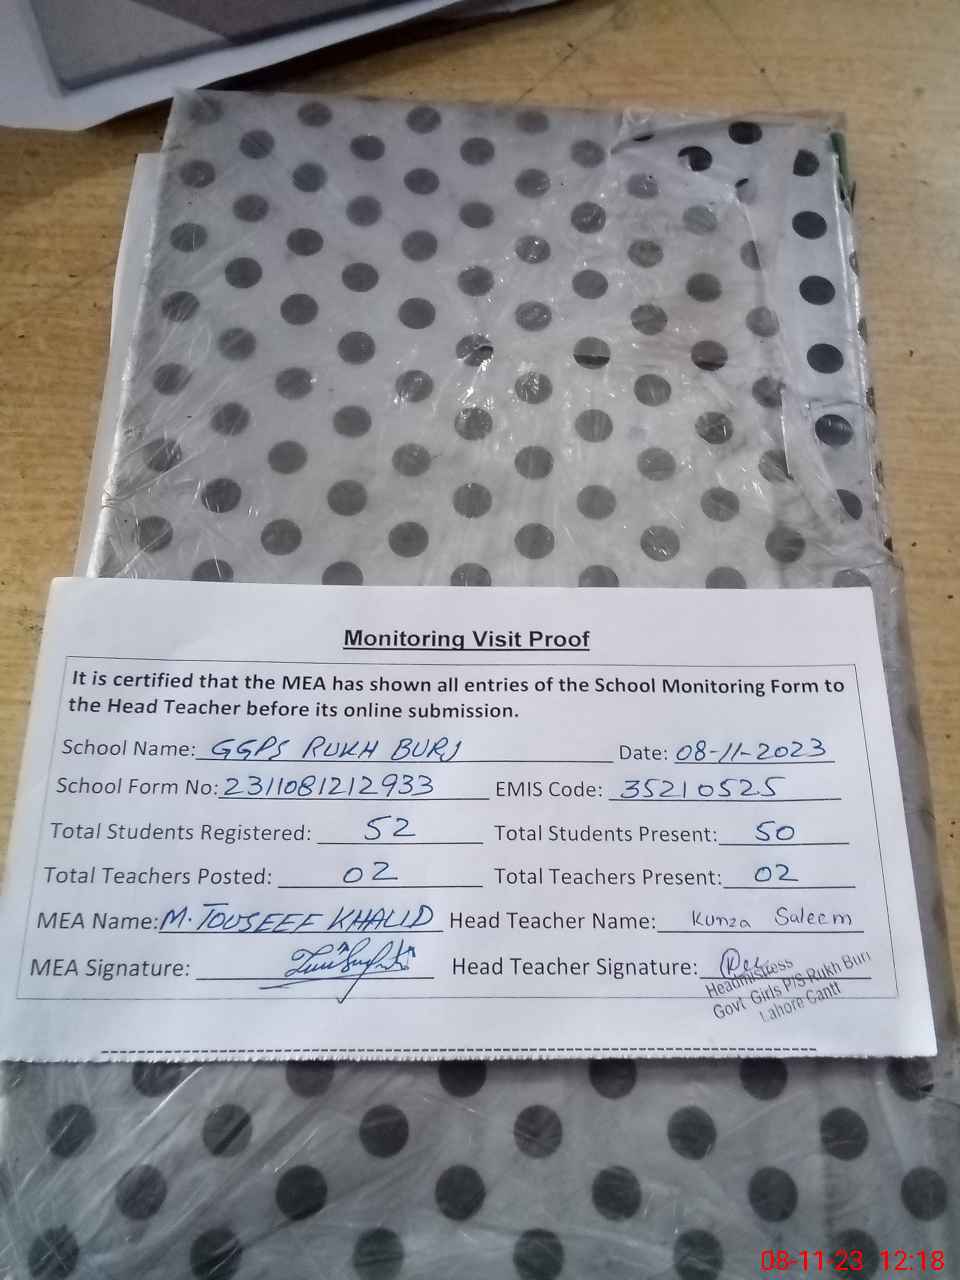 Monitoring Visit Proof
It is certified that the MEA has shown all entries of the School Monitoring Form to
the Head Teacher before its online submission.
School Name: GGPS RUKH BURJ Date: 08-11-2023
School Form No: 2311081212933 EMIS Code: 35210525
Total Students Registered: 52 Total Students Present: 50
Total Teachers Posted: 02 Total Teachers Present: 02
MEA Name: M. TOUSEEF KHALID Head Teacher Name: Kunza Saleem
MEA Signature: Head Teacher Signature:
Headmistress
Govt Girls P/S Rukh Burj
Lahore Cantt
08-11-23 12:18